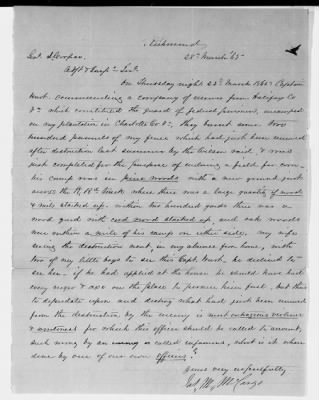 Richmond
28th March '65
Genl S Cooper
Adjt & Insp. Genl.
On Thursday night 23d March 1865 Captain
Hunt commanding a company of reserves from Halifax Co
Va which constituted the guard of federal prisoners, encamped
on my plantation in Charlotte Co Va they burnt some two
hundred pannels of my fence which had just been renewed
after destruction last summer by the Wilson raid & was
just completed for the purpose of enclosing a field for corn
his camp was in pine woods with a new ground just
across the R. Rd track where there was a large quantity of wood
& rails started up. within two hundred yards there was a
wood yard with cord wood started up and oak woods
were within a mile of his camp on either side, my wife
seeing the destruction went, in my absence from home, with
two of my little boys to see this Capt Hunt, he declined to
see her – if he had applied at the house he should have had
every negro & axe on the place to procure him fuel, but thus
to depredate upon and destroy what had just been renewed
from the destruction by the enemy is most outrageous violence
& wantonness for which this officer should be called to account,
such wrong by an enemy is called infamous, what is it when
done by one of our own officers?
Yours very respectfully